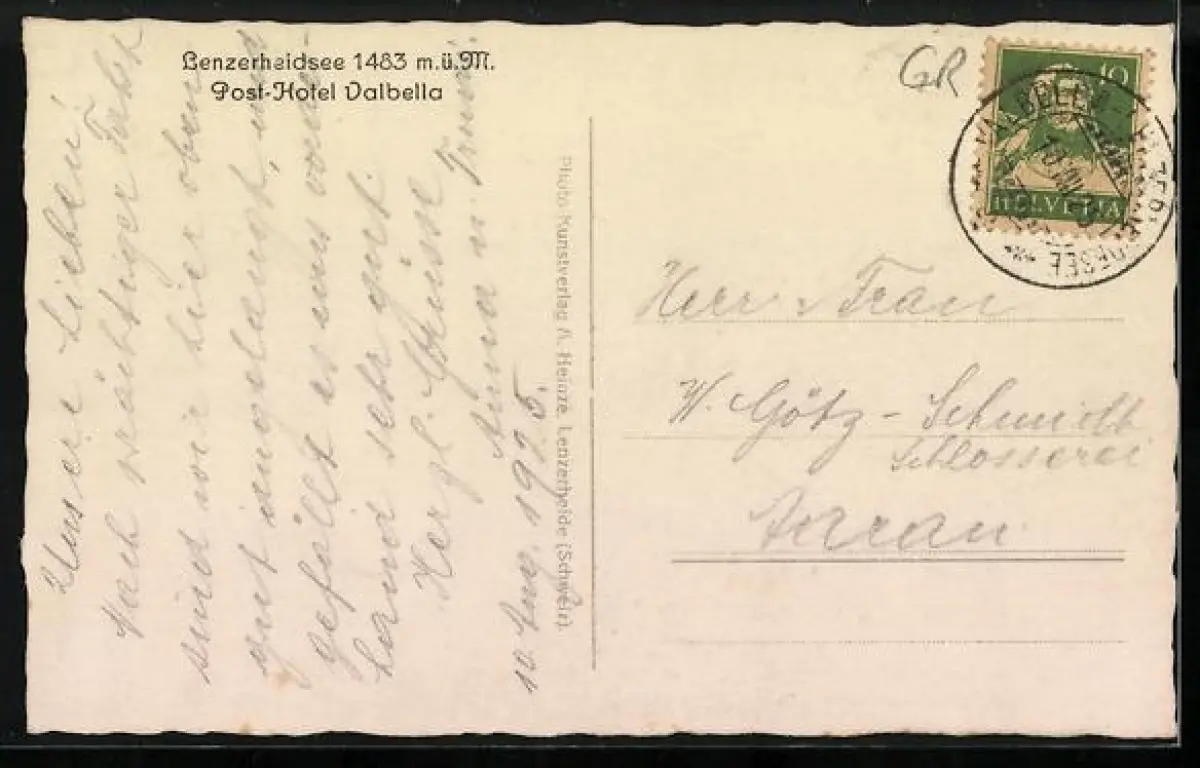 Lenzerheidsee 1483 m.ü.M.
Post-Hotel Valbella
Unsere Lieben!
Nach prächtiger Fahrt
sind wir hier oben
gut angelangt, und
gefällt es uns
hand sehr gut.
Herzl. Grüsse
Anna u.
10. Aug. 1925.
Photo Kunstverlag A. Heinze, Lenzerheide (Schweiz).
GR
10
HELVETIA
VALBELLA
Herr & Frau
W. Götz-Schmidt
Schlosserei
Aarau